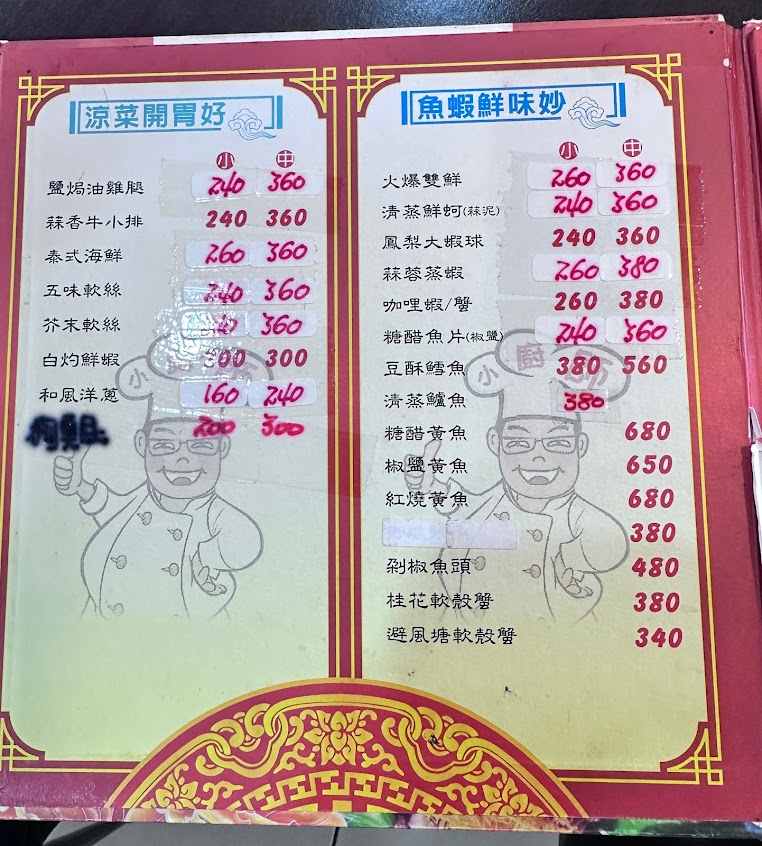 涼菜開胃好
小 中
鹽焗油雞腿 240 360
蒜香牛小排 240 360
泰式海鮮 260 360
五味軟絲 240 360
芥末軟絲 360
白灼鮮蝦 300
和風洋蔥 160 240
200 300
小廚師
魚蝦鮮味妙
小 中
火爆雙鮮 260 360
清蒸鮮蚵(蒜泥) 240 360
鳳梨大蝦球 240 360
蒜蓉蒸蝦 260 380
咖哩蝦/蟹 260 380
糖醋魚片(椒鹽) 240 360
豆酥鱈魚 380 560
清蒸鱸魚 380
糖醋黃魚 680
椒鹽黃魚 650
紅燒黃魚 680
380
剁椒魚頭 480
桂花軟殼蟹 380
避風塘軟殼蟹 340
小廚師